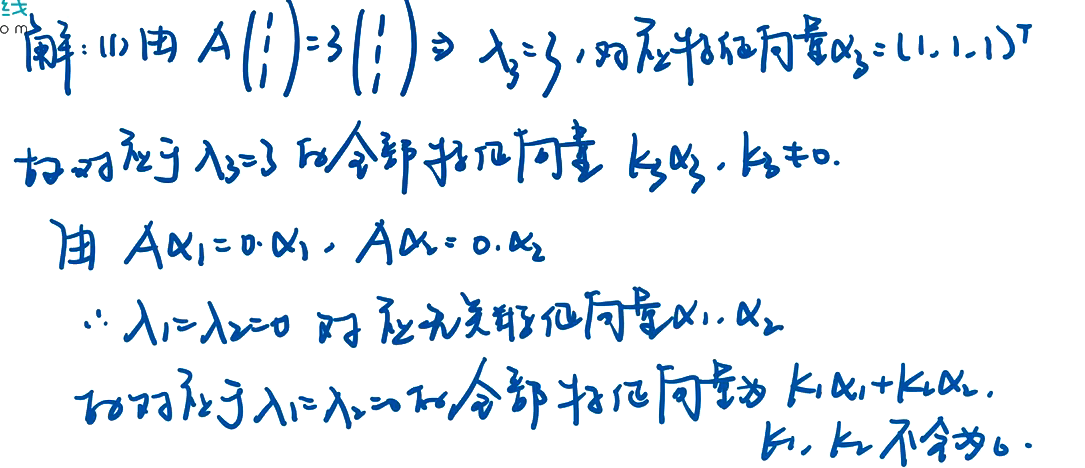 线
om
解：(1) 由 A(1 1 1) = 3(1 1 1) ⇒ λ₃=3，对应特征向量α₃=(1,1,1)ᵀ
故对应于 λ₃=3 的全部特征向量 k₃α₃，k₃≠0.
由 Aα₁=0·α₁，Aα₂=0·α₂
∴ λ₁=λ₂=0 对应无关特征向量α₁，α₂
故对应于λ₁=λ₂=0的全部特征向量为 k₁α₁+k₂α₂.
k₁，k₂ 不全为0.